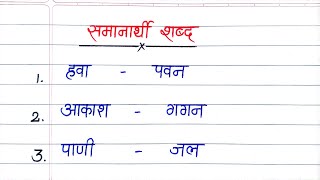 समानार्थी शब्द
1. हवा - पवन
2. आकाश - गगन
3. पाणी - जल